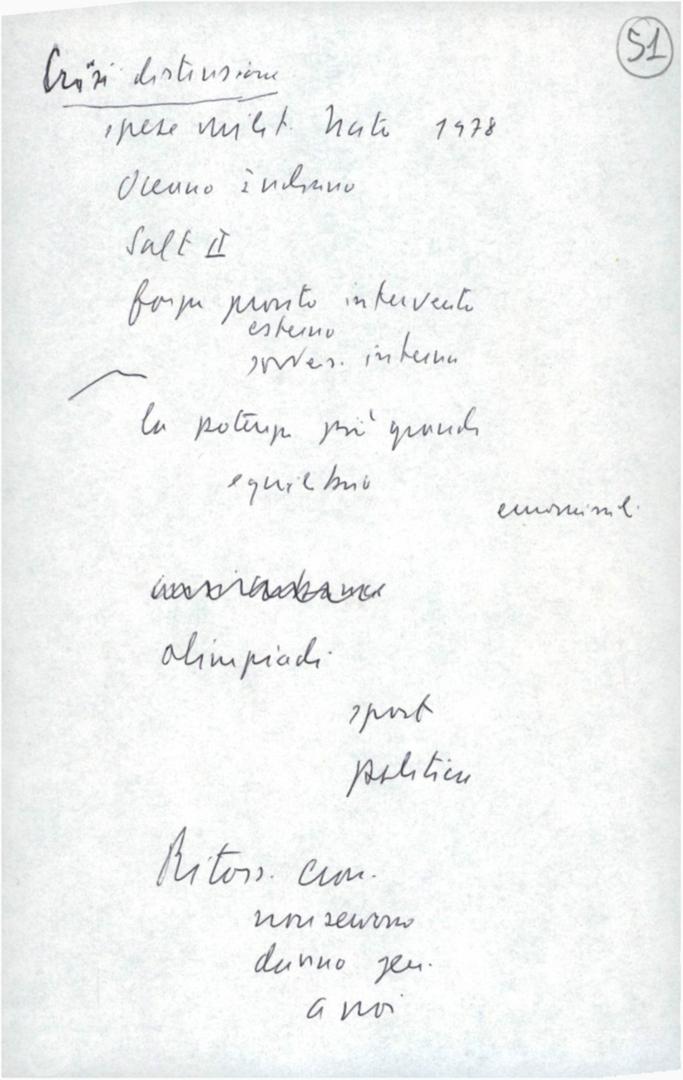 51
Crisi distensione
spese milit. Nato 1978
Oceano indiano
Salt II
forze pronto intervento
esterno
sovver. interna
la potenza più grande
equilibrio
olimpiadi
sport
politica
Ritors. econ.
non servono
danno gen.
a noi